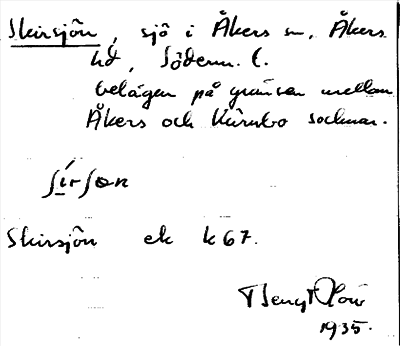 Skirsjön, sjö i Åkers sn, Åkers
hd, Söderm. l.
belägen på gränsen mellan
Åkers och Kärnbo socknar.
ʃi̱rʃɵn
Skirsjön ek k 67.
Bengt
1935.